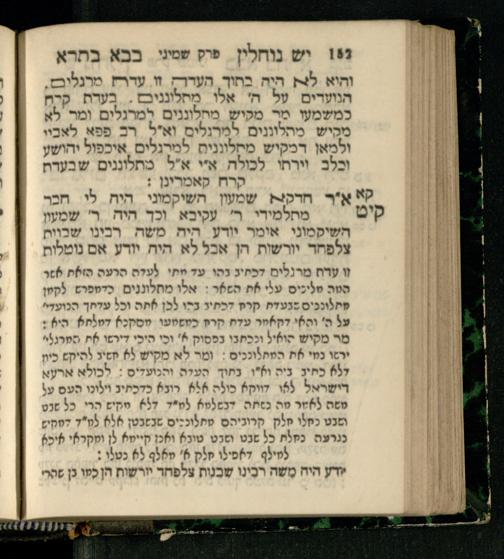 152 יש נוחלין פרק שמיני בבא בתרא
והיא לא היה בתוך העדה זו עדת מרגלים.
הנועדים על ה' אלו מתלוננים. בעדת קרח
כמשמעו מר מקיש מתלוננים למרגלים ומר לא
מקיש מתלוננים למרגלים וא"ל רב פפא לאביי
ולמאן דמקיש מתלוננים למרגלים איכפול יהושע
וכלב וירתו לכולה א"י א"ל מתלוננים שבעדת
קרח קאמרינן :
קא א"ר חדקא שמעון השיקמוני היה לי חבר
קיט מתלמידי ר' עקיבא וכך היה ר' שמעון
השיקמוני אומר יודע היה משה רבינו שבנות
צלפחד יורשות הן אבל לא היה יודע אם נוטלות
זו עדת מרגלים דכתיב בהו עד מתי לעדה הרעה הזאת אשר
המה מלינים עלי את השאר : אלו מתלוננים כדמפרש לקמן
מתלוננים שבעדת קרח דכתיב בהו לכן אתה וכל עדתך הנועדי'
על ה' והאי דקאמר עדת קרח כמשמעו מסקנא דמלתא היא :
מר מקיש הואיל ונכתבו בפסוק א' וכי היכי דירשו את המרגלי'
ירשו נמי את המתלוננים : ומר לא מקיש לא חשיב להיקש כיון
דלא כתיב ביה וא"ו בתוך העדה והנועדים : לכולא ארעא
דישראל לאו דווקא כולה אלא רובא כדכתיב וילונו העם על
משה לאשר מה נשתה דבשלמא למ"ד דלא מקיש הרי כל שבט
ושבט נחלו חלק קרוביהם מתלוננים שבשבטן אלא למ"ד דמקיש
נגרעה נחלת כל שבט ושבט טובא ואנן קיימא לן ומקראי איכא
למילף דאפילו חלק א' מאלף לא נטלו :
יודע היה משה רבינו שבנות צלפחד יורשות הן כמו בן שהרי